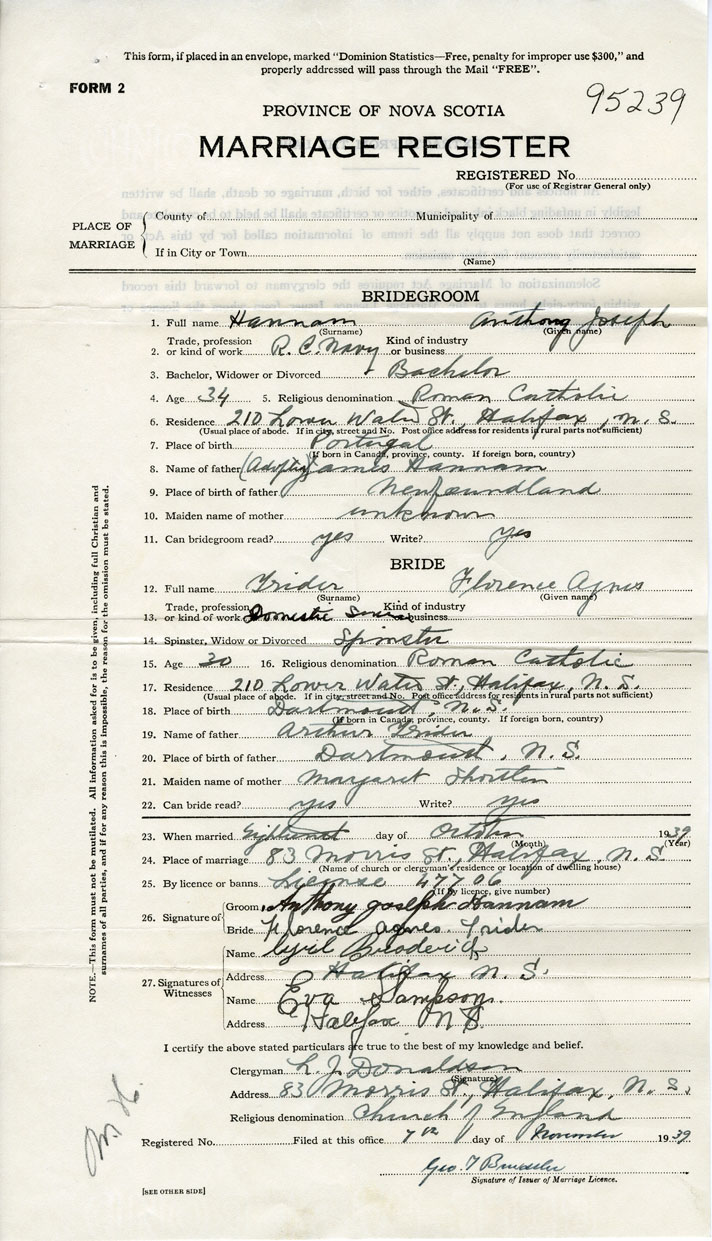 This form, if placed in an envelope, marked "Dominion Statistics—Free, penalty for improper use $300," and
properly addressed will pass through the Mail "FREE".
FORM 2
95239
PROVINCE OF NOVA SCOTIA
MARRIAGE REGISTER
REGISTERED No.
(For use of Registrar General only)
PLACE OF MARRIAGE
County of Municipality of
If in City or Town
(Name)
BRIDEGROOM
1. Full name Hannam Anthony Joseph
(Surname) (Given name)
2. Trade, profession or kind of work R. C. Navy Kind of industry or business
3. Bachelor, Widower or Divorced Bachelor
4. Age 34 5. Religious denomination Roman Catholic
6. Residence 210 Lower Water St., Halifax, N. S.
(Usual place of abode. If in city, street and No. Post office address for residents in rural parts not sufficient)
7. Place of birth Portugal
(If born in Canada, province, county. If foreign born, country)
8. Name of father (Adopting) James Hannam
9. Place of birth of father Newfoundland
10. Maiden name of mother unknown
11. Can bridegroom read? yes Write? yes
BRIDE
12. Full name Trider Florence Agnes
(Surname) (Given name)
13. Trade, profession or kind of work Domestic Kind of industry business
14. Spinster, Widow or Divorced Spinster
15. Age 30 16. Religious denomination Roman Catholic
17. Residence 210 Lower Water St., Halifax, N. S.
(Usual place of abode. If in city, street and No. Post office address for residents in rural parts not sufficient)
18. Place of birth Dartmouth, N. S.
(If born in Canada, province, county. If foreign born, country)
19. Name of father Arthur Trider
20. Place of birth of father Dartmouth, N. S.
21. Maiden name of mother Margaret
22. Can bride read? yes Write? yes
23. When married Eighteenth day of October 1939
(Month) (Year)
24. Place of marriage 83 Morris St., Halifax, N. S.
(Name of church or clergyman's residence or location of dwelling house)
25. By licence or banns License 47706
(If by licence, give number)
26. Signature of
Groom Anthony Joseph Hannam
Bride Florence Agnes Trider
27. Signatures of Witnesses
Name Cyril Broderick
Address Halifax N. S.
Name Eva Sampson
Address Halifax N S.
I certify the above stated particulars are true to the best of my knowledge and belief.
Clergyman L. J. Donaldson
(Signature)
Address 83 Morris St., Halifax, N. S.
Religious denomination Church of England
Registered No. Filed at this office 7th day of November 1939
Geo. T
Signature of Issuer of Marriage Licence.
[SEE OTHER SIDE]
NOTE.—This form must not be mutilated. All information asked for is to be given, including full Christian and
surnames of all parties, and if for any reason this is impossible, the reason for the omission must be stated.